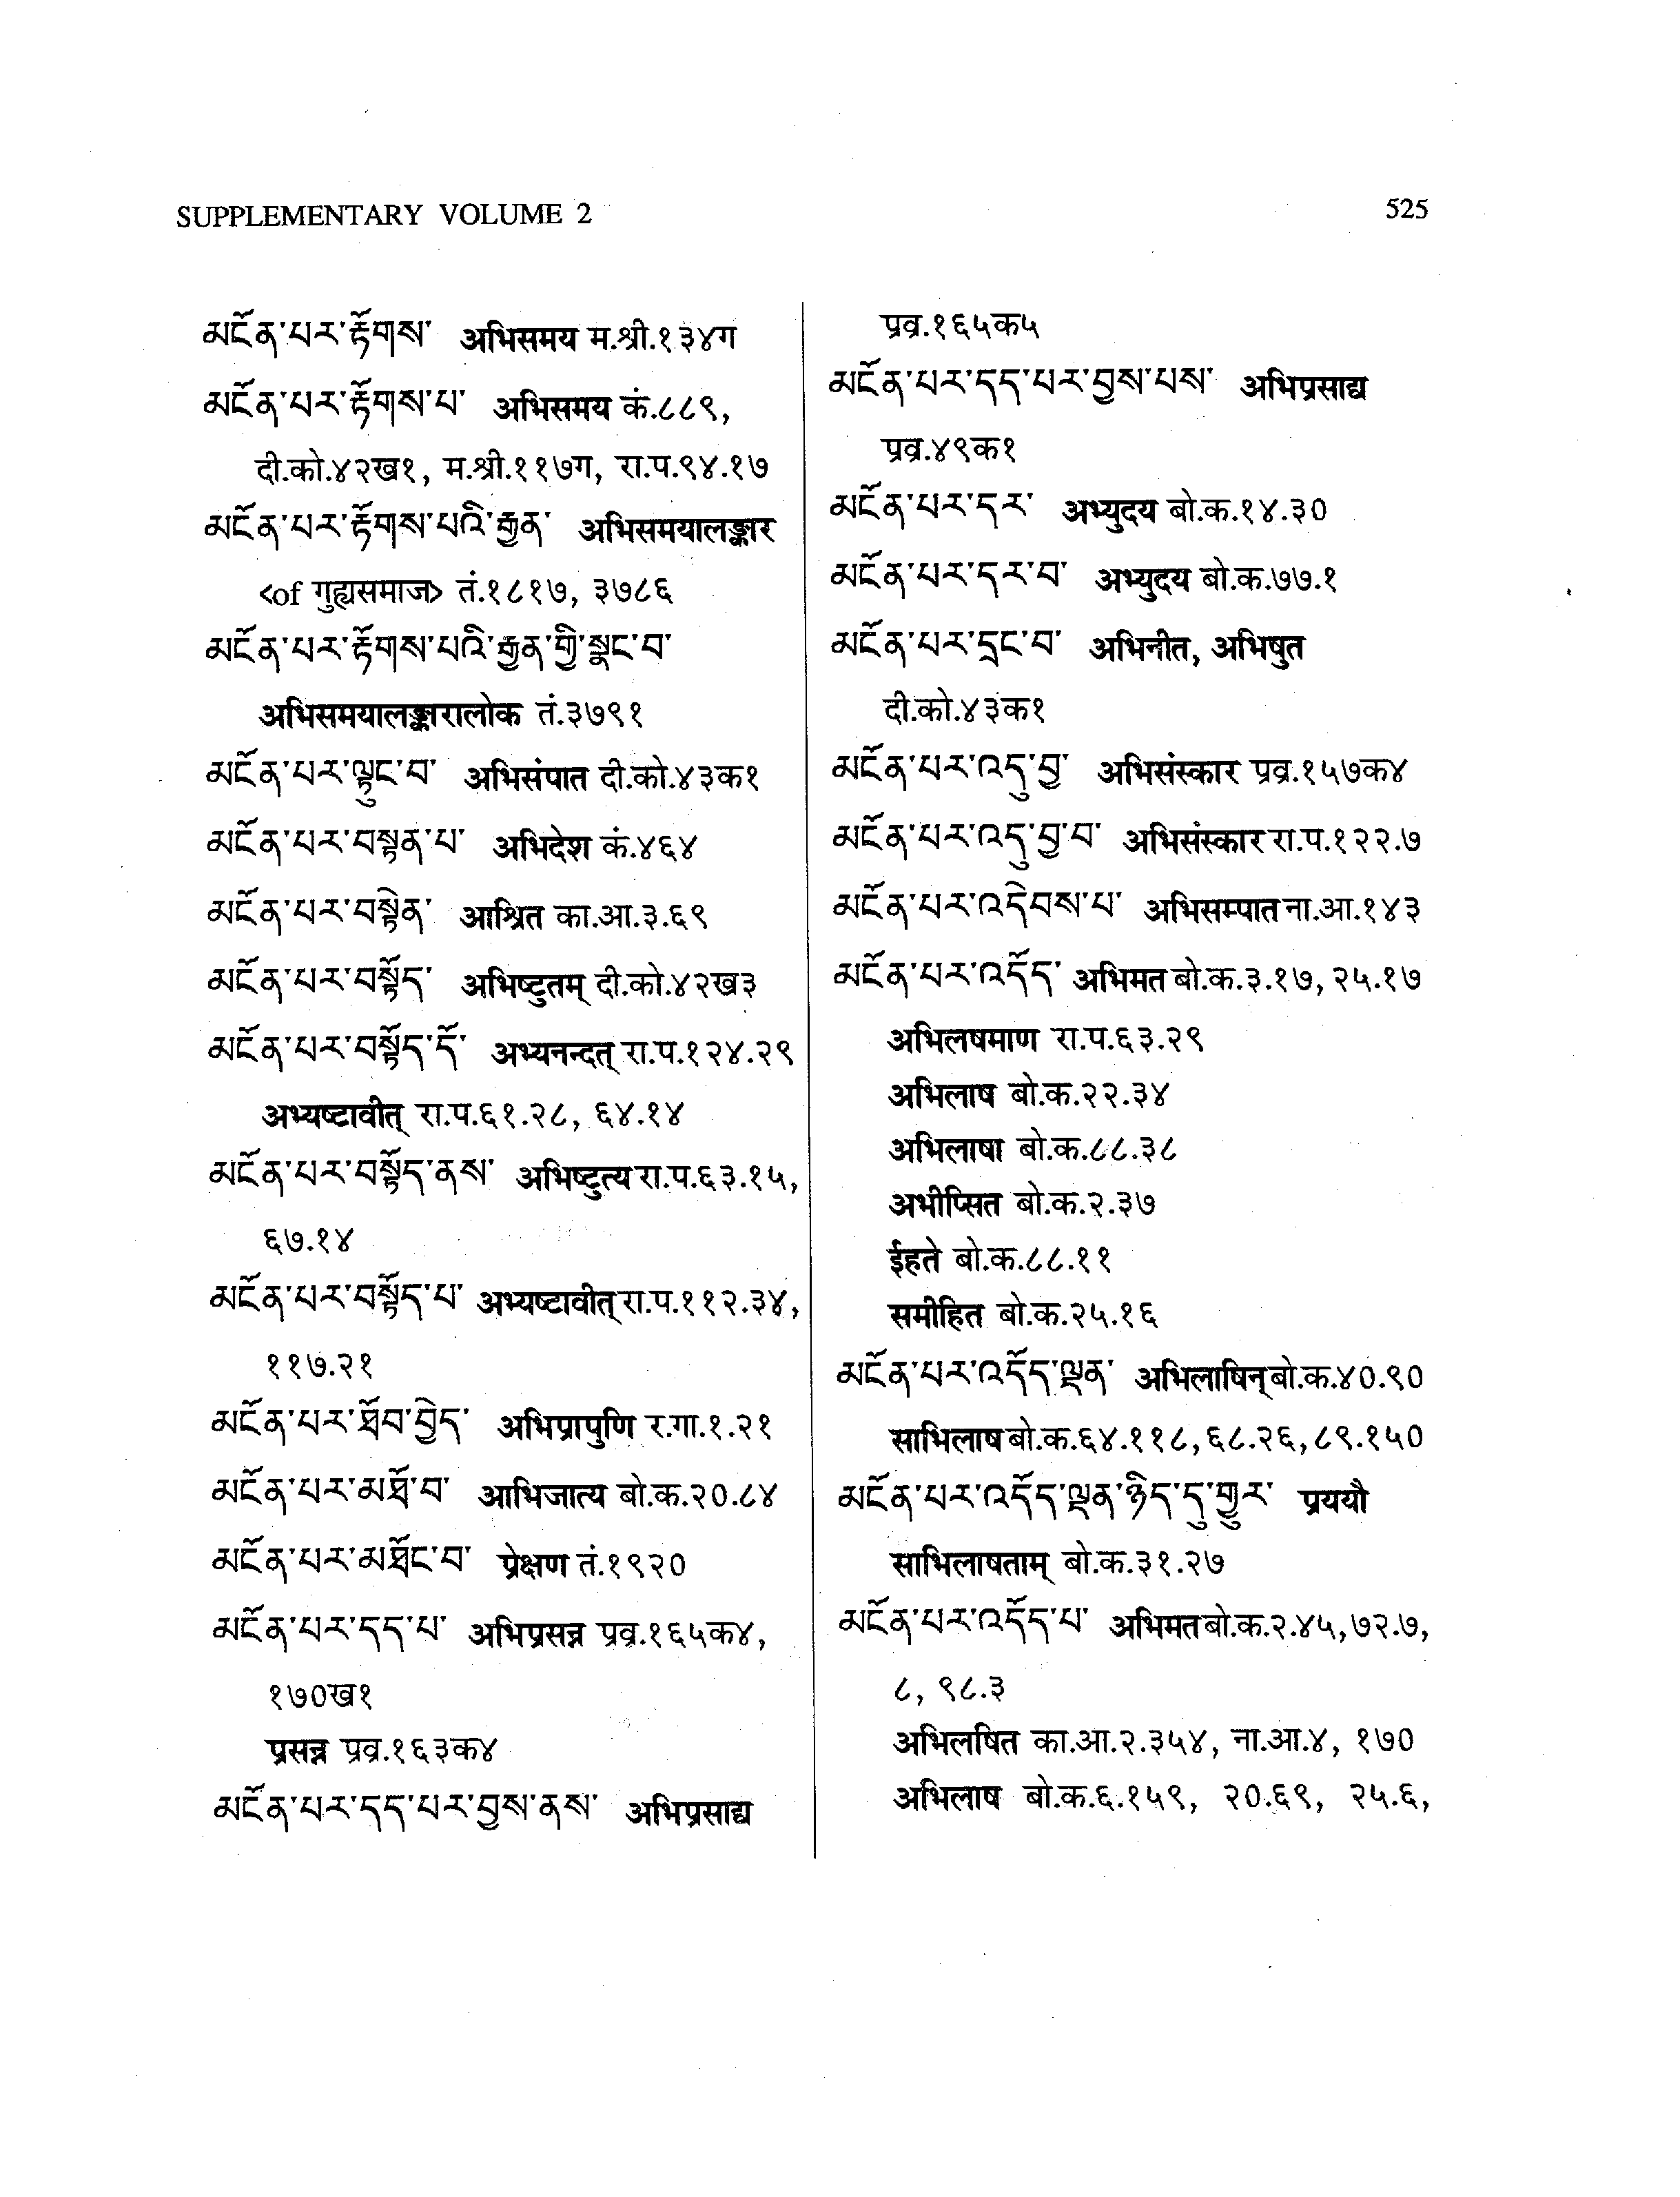 SUPPLEMENTARY VOLUME 2
525
མངོན་པར་རྟོགས་ अभिसमय म.श्री.१३४ग
མངོན་པར་རྟོགས་པ་ अभिसमय कं.८८९,
दी.को.४२ख१, म.श्री.११७ग, रा.प.९४.१७
མངོན་པར་རྟོགས་པའི་རྒྱན་ अभिसमयालङ्कार
<of गुह्यसमाज> तं.१८१७, ३७८६
མངོན་པར་རྟོགས་པའི་རྒྱན་གྱི་སྣང་བ་
अभिसमयालङ्कारालोक तं.३७९१
མངོན་པར་ལྟུང་བ་ अभिसंपात दी.को.४३क१
མངོན་པར་བསྟན་པ་ अभिदेश कं.४६४
མངོན་པར་བསྟེན་ आश्रित का.आ.३.६९
མངོན་པར་བསྟོད་ अभिष्टुतम् दी.को.४२ख३
མངོན་པར་བསྟོད་དོ་ अभ्यनन्दत् रा.प.१२४.२९
अभ्यष्टावीत् रा.प.६१.२८, ६४.१४
མངོན་པར་བསྟོད་ནས་ अभिष्टुत्य रा.प.६३.१५,
६७.१४
མངོན་པར་བསྟོད་པ་ अभ्यष्टावीत् रा.प.११२.३४,
११७.२१
མངོན་པར་ཐོབ་བྱེད་ अभिप्रापुणि र.गा.१.२१
མངོན་པར་མཐོ་བ་ आभिजात्य बो.क.२०.८४
མངོན་པར་མཐོང་བ་ प्रेक्षण तं.१९२०
མངོན་པར་དད་པ་ अभिप्रसन्न प्रव्र.१६५क४,
१७०ख१
प्रसन्न प्रव्र.१६३क४
མངོན་པར་དད་པར་བྱས་ནས་ अभिप्रसाद्य
प्रव्र.१६५क५
མངོན་པར་དད་པར་བྱས་པས་ अभिप्रसाद्य
प्रव्र.४९क१
མངོན་པར་དར་ अभ्युदय बो.क.१४.३०
མངོན་པར་དར་བ་ अभ्युदय बो.क.७७.१
མངོན་པར་དྲང་བ་ अभिनीत, अभिषुत
दी.को.४३क१
མངོན་པར་འདུ་བྱ་ अभिसंस्कार प्रव्र.१५७क४
མངོན་པར་འདུ་བྱ་བ་ अभिसंस्कार रा.प.१२२.७
མངོན་པར་འདེབས་པ་ अभिसम्पात ना.आ.१४३
མངོན་པར་འདོད་ अभिमत बो.क.३.१७, २५.१७
अभिलषमाण रा.प.६३.२९
अभिलाष बो.क.२२.३४
अभिलाषा बो.क.८८.३८
अभीप्सित बो.क.२.३७
ईहते बो.क.८८.११
समीहित बो.क.२५.१६
མངོན་པར་འདོད་ལྡན་ अभिलाषिन् बो.क.४०.९०
साभिलाष बो.क.६४.११८, ६८.२६, ८९.१५०
མངོན་པར་འདོད་ལྡན་ཉིད་དུ་གྱུར་ प्रययौ
साभिलाषताम् बो.क.३१.२७
མངོན་པར་འདོད་པ་ अभिमत बो.क.२.४५, ७२.७,
८, ९८.३
अभिलषित का.आ.२.३५४, ना.आ.४, १७०
अभिलाष बो.क.६.१५९, २०.६९, २५.६,